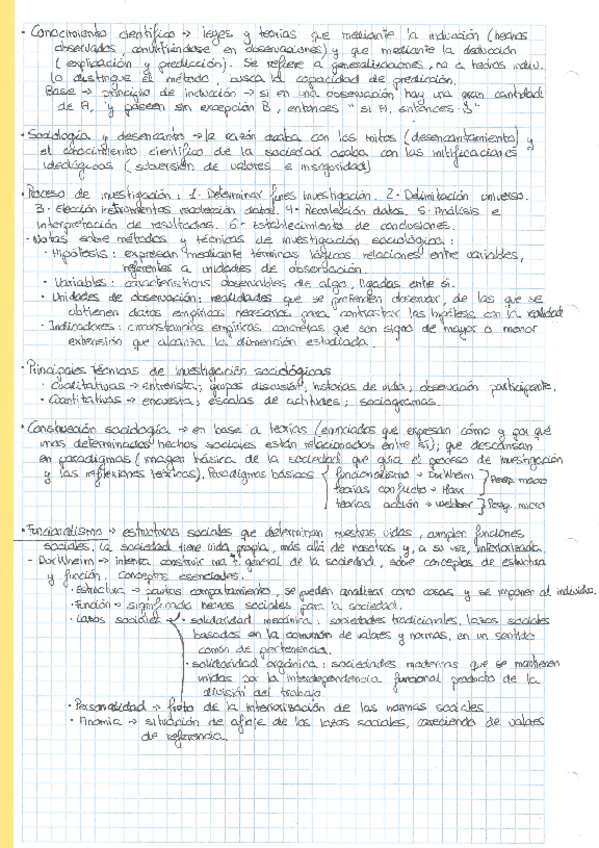 · Conocimiento científico → leyes y teorías que mediante la inducción (hechos
observados, convirtiéndose en observaciones) y que mediante la deducción
(explicación y predicción). Se refiere a generalizaciones, no a hechos indiv.
Lo distingue el método, busca la capacidad de predicción.
Base → principio de inducción → si en una observación hay una gran cantidad
de A, y poseen sin excepción B, entonces "si A, entonces B"
· Sociología y desencanto → la razón acaba con los mitos (desencantamiento) y
el conocimiento científico de la sociedad acaba con las mitificaciones
ideológicas (subversión de valores e
· Proceso de investigación: 1- Determinar fines investigación. 2- Delimitación universo.
3- Elección instrumentos recolección datos. 4- Recolección datos. 5- Análisis e
interpretación de resultados. 6- Establecimiento de conclusiones.
- Notas sobre métodos y técnicas de investigación sociológica:
· Hipótesis: expresan mediante términos lógicos relaciones entre variables,
referentes a unidades de observación.
· Variables: características observables de algo, ligadas entre sí.
· Unidades de observación: realidades que se pretenden observar, de las que se
obtienen datos empíricos necesarios para contrastar las hipótesis con la realidad
· Indicadores: circunstancias empíricas concretas que son signo de mayor o menor
extensión que alcanza la dimensión estudiada.
· Principales técnicas de investigación sociológicas
· Cualitativas → entrevista; grupos discusión; historias de vida; observación participante.
· Cuantitativas → encuesta; escalas de actitudes; sociogramas.
· Construcción sociología → en base a teorías (enunciados que expresan cómo y por qué
unos determinados hechos sociales están relacionados entre sí); que descansan
en paradigmas (imagen básica de la sociedad que guía el proceso de investigación
y las reflexiones teóricas). Paradigmas básicos { funcionalismo → Durkheim } Persp. macro
teorías conflicto → Marx
teorías acción → Webber } Persp. micro
· Funcionalismo → estructuras sociales que determinan nuestras vidas, cumplen funciones
sociales. La sociedad tiene vida propia, más allá de nosotros y, a su vez, interiorizada.
- Durkheim → intenta construir una t. general de la sociedad, sobre conceptos de estructura
y función. Conceptos esenciales.
· Estructura → pautas comportamiento, se pueden analizar como cosas y se imponen al individuo.
· Función → significado hechos sociales para la sociedad.
· Lazos sociales → · solidaridad mecánica: sociedades tradicionales, lazos sociales
basados en la comunión de valores y normas, en un sentido
común de pertenencia.
· solidaridad orgánica: sociedades modernas que se mantienen
unidas por la interdependencia funcional producto de la
división del trabajo
· Personalidad → fruto de la interiorización de las normas sociales.
· Anomia → situación de afloje de los lazos sociales, careciendo de valores
de referencia.